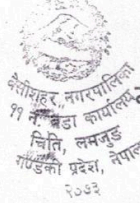 बेसीशहर नगरपालिका
११ नं. वडा कार्यालय
चिति, लमजुङ
गण्डकी प्रदेश, नेपाल
२०७३